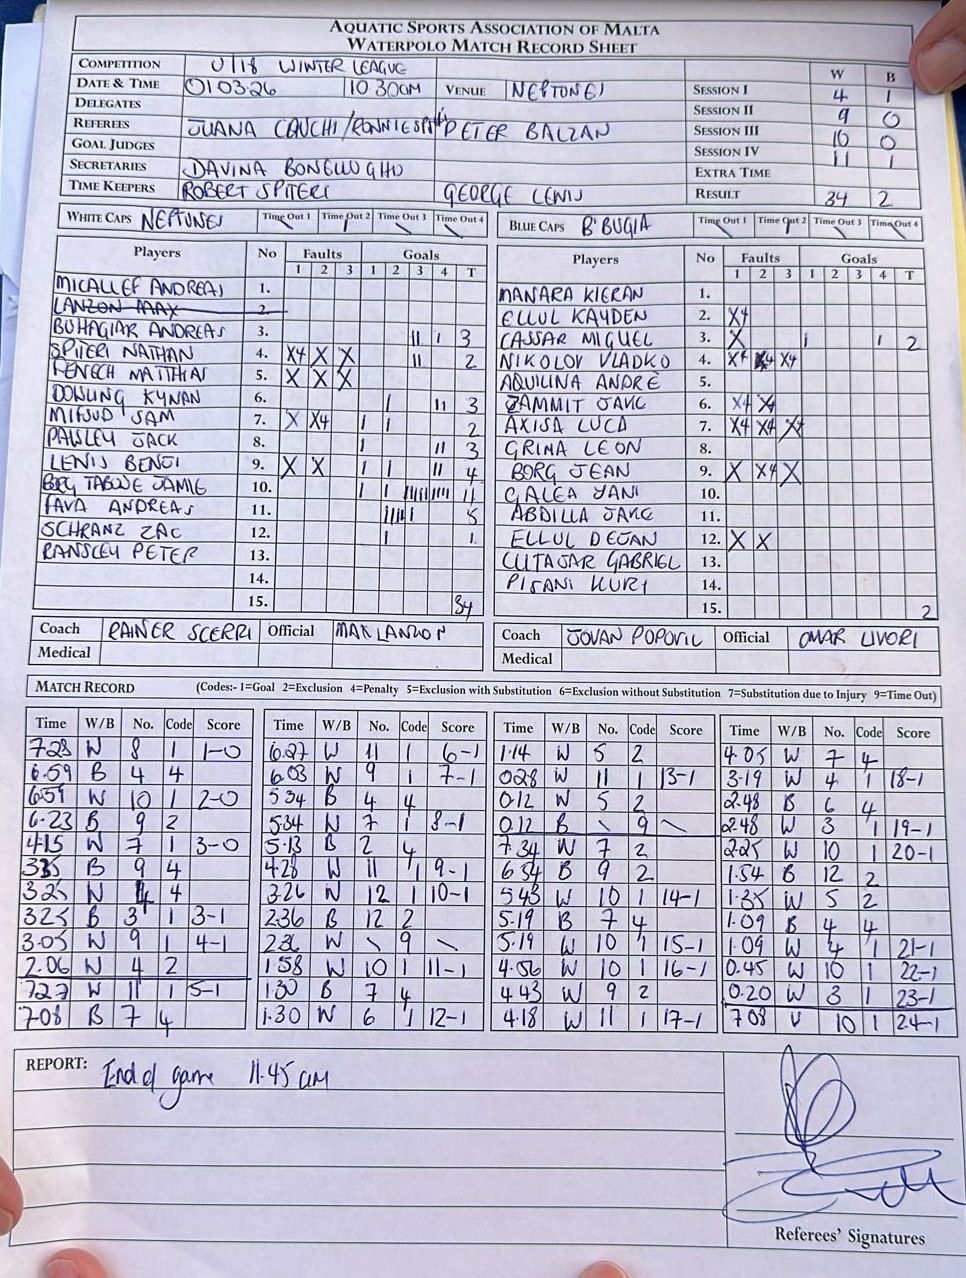 AQUATIC SPORTS ASSOCIATION OF MALTA
WATERPOLO MATCH RECORD SHEET
COMPETITION U/18 WINTER LEAGUE W B
DATE & TIME 01 03.26 10.30am VENUE NEPTUNES SESSION I 4 1
DELEGATES SESSION II 9 0
REFEREES JUANA CAUCHI/RONNIE SPITERI PETER BALZAN SESSION III 10 0
GOAL JUDGES SESSION IV 11 1
SECRETARIES DAVINA EXTRA TIME
TIME KEEPERS ROBERT SPITERI GEORGE LEWIS RESULT 34 2
WHITE CAPS NEPTUNES Time Out 1 Time Out 2 Time Out 3 Time Out 4
Players No Faults Goals
1 2 3 1 2 3 4 T
MICALLEF ANDREAS 1.
LANZON MAX 2.
BUHAGIAR ANDREAS 3. II I 3
SPITERI NATHAN 4. X4 X X II 2
FENECH MATTHIAS 5. X X X
DOWLING KYNAN 6. I II 3
MIFSUD SAM 7. X X4 I I 2
PAISLEY JACK 8. I II 3
LEWIS BENJI 9. X X I I II 4
BORG TABONE JAMIE 10. I I IIIII IIII 11
FAVA ANDREAS 11. IIII I 5
SCHRANZ ZAC 12. I 1
RANSLEY PETER 13.
14.
15. 34
Coach RAINER SCERRI Official MAX LANZON
Medical
BLUE CAPS B'BUGIA Time Out 1 Time Out 2 Time Out 3 Time Out 4
Players No Faults Goals
1 2 3 1 2 3 4 T
MANARA KIERAN 1.
ELLUL KAYDEN 2. X4
CASSAR MIGUEL 3. X I I 2
NIKOLOV VLADKO 4. X4 X4 X4
AQUILINA ANDRE 5.
ZAMMIT JAKE 6. X4 X4
AXISA LUCA 7. X4 X4 X4
GRIMA LEON 8.
BORG JEAN 9. X X4 X
GALEA YANI 10.
ABDILLA JAKE 11.
ELLUL DEJAN 12. X X
CUTAJAR GABRIEL 13.
PISANI KURT 14.
15. 2
Coach JOVAN POPOVIC Official OMAR LIVORI
Medical
MATCH RECORD (Codes:- 1=Goal 2=Exclusion 4=Penalty 5=Exclusion with Substitution 6=Exclusion without Substitution 7=Substitution due to Injury 9=Time Out)
Time W/B No. Code Score
7.28 W 8 1 1-0
6.59 B 4 4
6.59 W 10 1 2-0
6.23 B 9 2
4.15 W 7 1 3-0
3.35 B 9 4
3.25 W 4 4
3.25 B 3 1 3-1
3.05 W 9 1 4-1
2.06 W 4 2
7.27 W 11 1 5-1
7.08 B 7 4
Time W/B No. Code Score
6.27 W 11 1 6-1
6.03 W 9 1 7-1
5.34 B 4 4
5.34 W 7 1 8-1
5.13 B 2 4
4.28 W 11 1 9-1
3.26 W 12 1 10-1
2.36 B 12 2
2.36 W \ 9 \
1.58 W 10 1 11-1
1.30 B 7 4
1.30 W 6 1 12-1
Time W/B No. Code Score
1.14 W 5 2
0.28 W 11 1 13-1
0.12 W 5 2
0.12 B \ 9 \
7.34 W 7 2
6.54 B 9 2
5.43 W 10 1 14-1
5.19 B 7 4
5.19 W 10 1 15-1
4.56 W 10 1 16-1
4.43 W 9 2
4.18 W 11 1 17-1
Time W/B No. Code Score
4.05 W 7 4
3.19 W 4 1 18-1
2.48 B 6 4
2.48 W 3 1 19-1
2.25 W 10 1 20-1
1.54 B 12 2
1.35 W 5 2
1.09 B 4 4
1.09 W 4 1 21-1
0.45 W 10 1 22-1
0.20 W 3 1 23-1
7.08 W 10 1 24-1
REPORT: End of game 11.45 am
Referees' Signatures